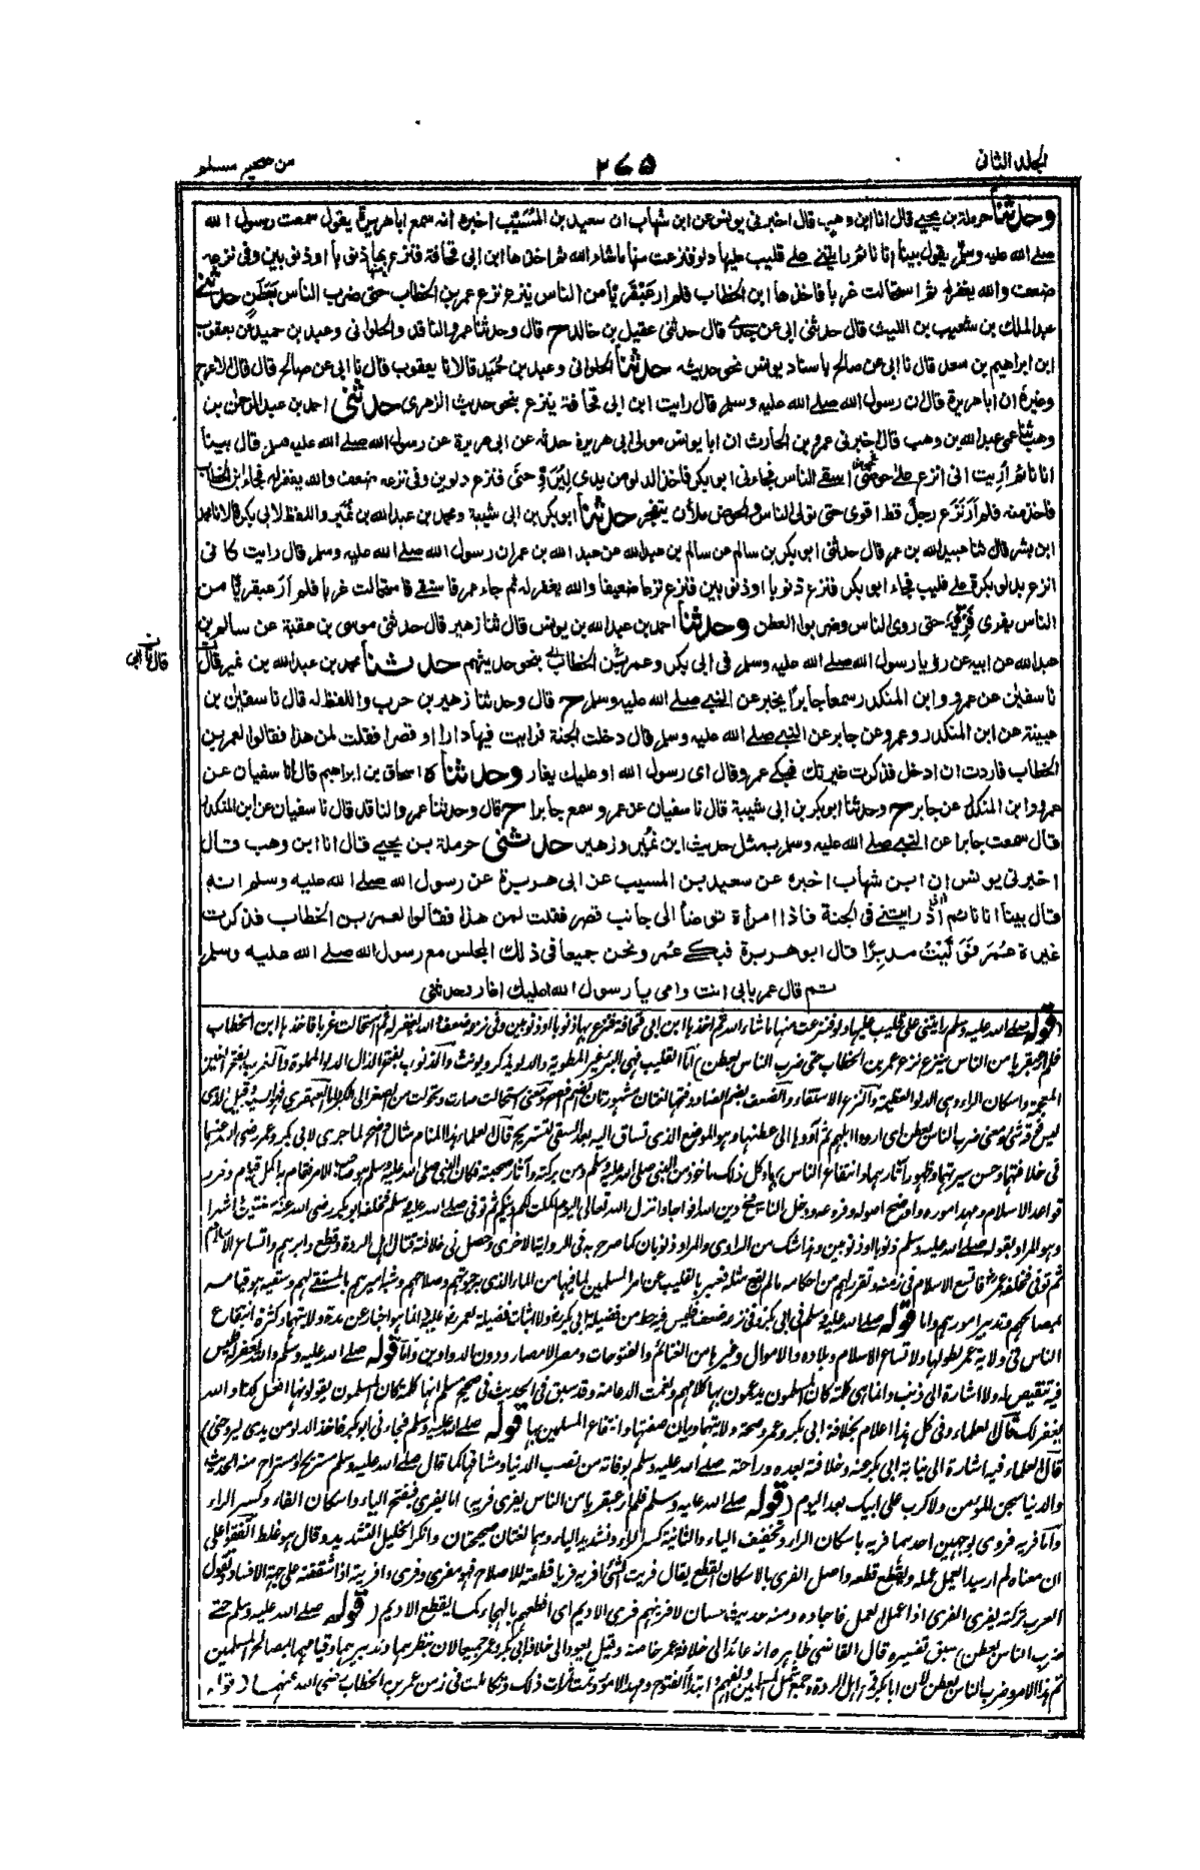 الجلد الثانى
٢٧٥
من صحيح مسلم
وحدثنا حرملة بن يحيى قال انا ابن وهب قال اخبرنى يونس عن ابن شهاب ان سعيد بن المُسَيَّب اخبره انه سمع اباهريرة يقول سمعت رسول الله
صلى الله عليه وسلم يقول بينا انا نائم رايتنى على قليب عليها دلو فنزعت منها ماشاء الله ثم اخذها ابن ابى قحافة فنزع بها ذنوبا او ذنوبين وفى نزعه
ضعف والله يغفر له ثم استحالت غربا فاخذها ابن الخطاب فلم ار عَبْقَريًّا من الناس ينزع نزع عمر بن الخطاب حتى ضرب الناس بعَطَنٍ حدثنى
عبدالملك بن شعيب بن الليث قال حدثنى ابى عن جدى قال حدثنى عقيل بن خالد ح قال وحدثنا عمرو الناقد والحلوانى وعبد بن حميد عن يعقوب
ابن ابراهيم بن سعد قال نا ابى عن صالح باسناد يونس نحو حديثه حدثنا الحلوانى وعبد بن حُمَيد قالا نا يعقوب قال نا ابى عن صالح قال قال الاعرج
وغيرهُ ان أبا هريرة قال ان رسول الله صلى الله عليه وسلم قال رايت ابن ابى قحافة ينزع بنحو حديث الزهرى حدثنى احمد بن عبد الرحمن بن
وهب ثنا عمى عبدالله بن وهب قال اخبرنى عمرو بن الحارث ان ابا يونس مولى ابى هريرة حدثه عن ابى هريرة عن رسول الله صلى الله عليه وسلم قال بينا
انا نائم أُرِيت انى انزع على حوضى اسقى الناس فجاءنى ابو بكر فاخذ الدلو من يدى لِيُرَوِّحَنى فنزع دلوين وفى نزعه ضعف والله يغفر له فجاء ابن الخطاب
فاخذ منه فلم اَرَ نَزْعَ رجل قط اقوى حتى تولى الناس والحوض ملأن يتفجر حدثنا ابو بكر بن ابى شيبة ومحمد بن عبدالله بن نُمَير واللفظ لابى بكر قالا نا محمد
ابن بشر قال ثنا عبيد الله بن عمر قال حدثنى ابو بكر بن سالم عن سالم بن عبدالله عن عبد الله بن عمر ان رسول الله صلى الله عليه وسلم قال رايت كانى
انزع بدلو بكرة على قليب فجاء ابو بكر فنزع ذنوبا او ذنوبين فنزع نزعا ضعيفا والله يغفر له ثم جاء عمر فاستقى فاستحالت غربا فلم اَرَ عبقريًّا من
الناس يفرى فَرِيَّه حتى روى الناس وضربوا العطن وحدثنا احمد بن عبدالله بن يونس قال ثنا زهير قال حدثنى موسى بن عقبة عن سالم بن
عبدالله عن ابيه عن رؤيا رسول الله صلى الله عليه وسلم فى ابى بكر وعمر بن الخطاب بنحو حديثهم حدثنا محمد بن عبدالله بن نمير قال
نا سفين عن عمرو وابن المنكدر سمعا جابرًا يخبر عن النبى صلى الله عليه وسلم ح قال وحدثنا زهير بن حرب واللفظ له قال نا سفين بن
عيينة عن ابن المنكدر وعمرو عن جابر عن النبى صلى الله عليه وسلم قال دخلت الجنة فرايت فيها دارا او قصرا فقلت لمن هذا فقالوا لعمر بن
الخطاب فاردت ان ادخل فذكرت غيرتك فبكى عمر وقال اى رسول الله او عليك يغار وحدثناه اسحاق بن ابراهيم قال انا سفيان عن
عمرو وابن المنكدر عن جابر ح وحدثنا ابو بكر بن ابى شيبة قال نا سفيان عن عمرو سمع جابرا ح قال وحدثنا عمرو الناقد قال نا سفيان عن ابن المنكدر
قال سمعت جابرا عن النبى صلى الله عليه وسلم بمثل حديث ابن نُمَيْر وزهير حدثنى حرملة بن يحيى قال انا ابن وهب قال
اخبرنى يونس ان ابن شهاب اخبره عن سعيد بن المسيب عن ابى هريرة عن رسول الله صلى الله عليه وسلم انه
قال بينا انا نائم اذ رايتنى فى الجنة فاذا امرأة توضأ الى جانب قصر فقلت لمن هذا فقالوا لعمر بن الخطاب فذكرت
غيرة عُمَرَ فَوَلَّيْتُ مدبِرًا قال ابو هريرة فبكى عُمر ونحن جميعا فى ذلك المجلس مع رسول الله صلى الله عليه وسلم
ثم قال عمر بابى انت وامى يا رسول الله اعليك اغار وحدثنى
(قوله صلى الله عليه وسلم رايتنى على قليب عليها دلو فنزعت منها ماشاء الله ثم اخذها ابن ابى قحافة فنزع بها ذنوبا او ذنوبين وفى نزعه ضعف والله يغفر له ثم استحالت غربا فاخذها ابن الخطاب
فلم ار عبقريا من الناس ينزع نزع عمر بن الخطاب حتى ضرب الناس بعطن) اما القليب فهى البئر غير المطوية والدلو يذكر ويؤنث والذنوب بفتح الذال الدلو المملوة والغرب بفتح الغين
المعجمة واسكان الراء وهى الدلو العظيمة والنزع الاستقاء والضعف بضم الضاد وفتحها لغتان مشهورتان الضم افصح ومعنى استحالت صارت وتحولت من الصغر الى الكبر واما العبقرى فهو السيد وقيل الذى
ليس فوقه شئ ومعنى ضرب الناس بعطن اى ارووا ابلهم ثم آووها الى عطنها وهو الموضع الذى تساق اليه بعد السقى لتستريح قال العلماء هذا المنام مثال واضح لما جرى لابى بكر وعمر رضى الله عنهما
فى خلافتهما وحسن سيرتهما وظهور آثارهما وانتفاع الناس بهما وكل ذلك ماخوذ من النبى صلى الله عليه وسلم ومن بركته وآثار صحبته فكان النبى صلى الله عليه وسلم هو صاحب الامر فقام به اكمل قيام وقرر
قواعد الاسلام ومهد اموره واوضح اصوله وفروعه ودخل الناس فى دين الله افواجا وانزل الله تعالى اليوم اكملت لكم دينكم ثم توفى صلى الله عليه وسلم فخلفه ابو بكر رضى الله عنه سنتين واشهرا
وهو المراد بقوله صلى الله عليه وسلم ذنوبا او ذنوبين وهذا شك من الراوى والمراد ذنوبان كما صرح به فى الرواية الاخرى وحصل فى خلافته قتال اهل الردة وقطع دابرهم واتساع الاسلام
ثم توفى فخلفه عمر فاتسع الاسلام فى زمنه وتقرر لهم من احكامه مالم يقع مثله فعبر بالقليب عن امر المسلمين لما فيها من الماء الذى به حيوتهم وصلاحهم وشبه اميرهم بالمستقى لهم وسقيه هو قيامه
بمصالحهم وتدبير امورهم واما قوله صلى الله عليه وسلم فى ابى بكر وفى نزعه ضعف فليس فيه حط من فضيلة ابى بكر ولا اثبات فضيلة لعمر عليه وانما هو اخبار عن مدة ولايتهما وكثرة انتفاع
الناس فى ولاية عمر لطولها ولاتساع الاسلام وبلاده والاموال وغيرها من الغنائم والفتوحات ومصر الامصار ودون الدواوين واما قوله صلى الله عليه وسلم والله يغفر له فليس
فيه تنقيص له ولا اشارة الى ذنب وانما هى كلمة كان المسلمون يدعمون بها كلامهم ونعمت الدعامة وقد سبق فى الحديث فى صحيح مسلم انها كلمة كان المسلمون يقولونها افعل كذا والله
يغفر لك قال العلماء وفى كل هذا اعلام بخلافة ابى بكر وعمر وصحة ولايتهما وبيان صفتها وانتفاع المسلمين بها قوله صلى الله عليه وسلم فجاءنى ابو بكر فاخذ الدلو من يدى ليروحنى)
قال العلماء فيه اشارة الى نيابة ابى بكر عنه وخلافته بعده وراحته صلى الله عليه وسلم بوفاته من نصب الدنيا ومشاقها كما قال صلى الله عليه وسلم مستريح ومستراح منه الحديث
والدنيا سجن المؤمن ولا كرب على ابيك بعد اليوم (قوله صلى الله عليه وسلم فلم ار عبقريا من الناس يفرى فريه) اما يفرى فبفتح الياء واسكان الفاء وكسر الراء
واما فريه فروى بوجهين احدهما فريه باسكان الراء وتخفيف الياء والثانية كسر الراء وتشديد الياء وهما لغتان صحيحتان وانكر الخليل التشديد وقال هو غلط اتفقوا على
ان معناه لم ار سيدا يعمل عمله ويقطع قطعه واصل الفرى بالاسكان القطع يقال فريت الشئ افريه فريا قطعته للاصلاح فهو مفرى وفرى وافريته اذا شققته على جهة الافساد وتقول
العرب تركته يفرى الفرى اذا عمل العمل فاجاده ومنه حديث حسان لافرينهم فرى الاديم اى اقطعهم بالهجاء كما يقطع الاديم (قوله صلى الله عليه وسلم حتى
ضرب الناس بعطن) سبق تفسيره قال القاضى ظاهره انه عائد الى خلافة عمر خاصة وقيل يعود الى خلافة ابى بكر وعمر جميعا لان بنظرهما وتدبيرهما وقيامهما بمصالح المسلمين
تم هذا الامر وضرب الناس بعطن لان ابا بكر قمع اهل الردة وجمع شمل المسلمين والفهم وابتدأ الفتوح ومهد الامور وتمت ثمرات ذلك وتكاملت فى زمن عمر بن الخطاب رضى الله عنهما (قوله